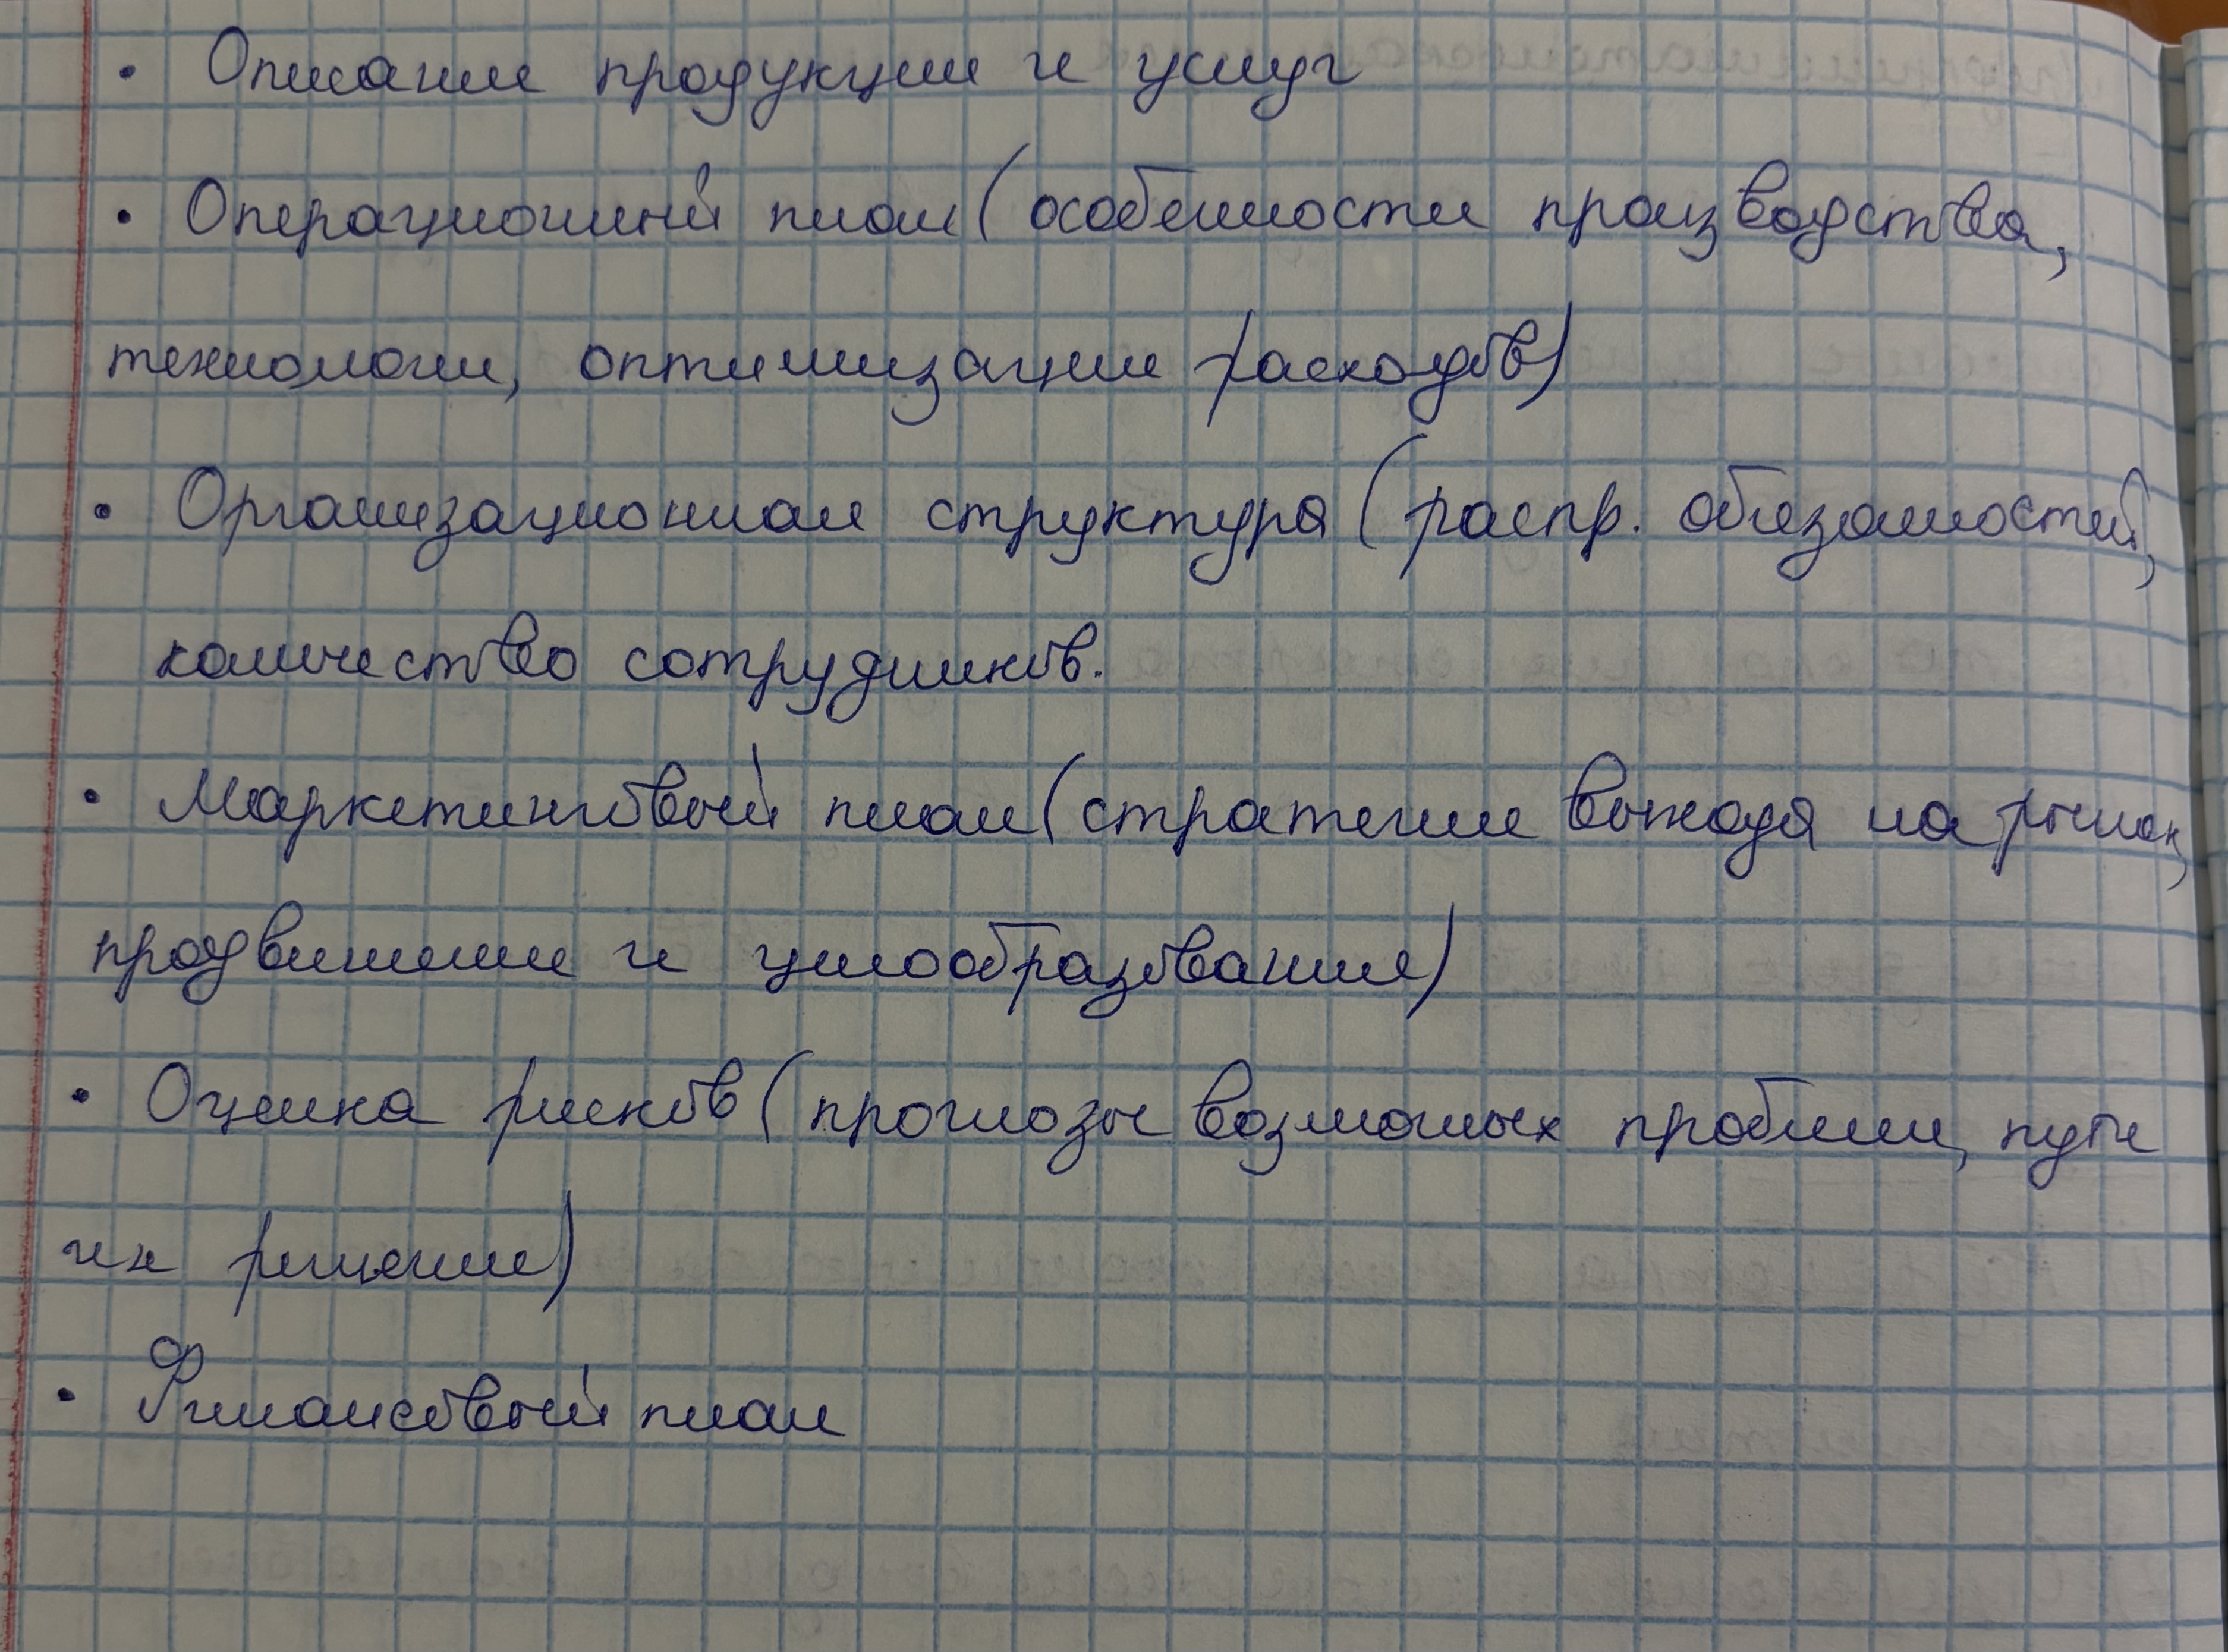 • Описание продукции и услуг
• Операционный план (особенности производства,
технологии, оптимизации расходов)
• Организационная структура (распр. обязаностей,
количество сотрудников.
• Маркетинговый план (стратегии выхода на рынок,
продвижении и ценообразование)
• Оценка рисков (прогнозы возможных проблем, пути
их решение)
• Финансовый план